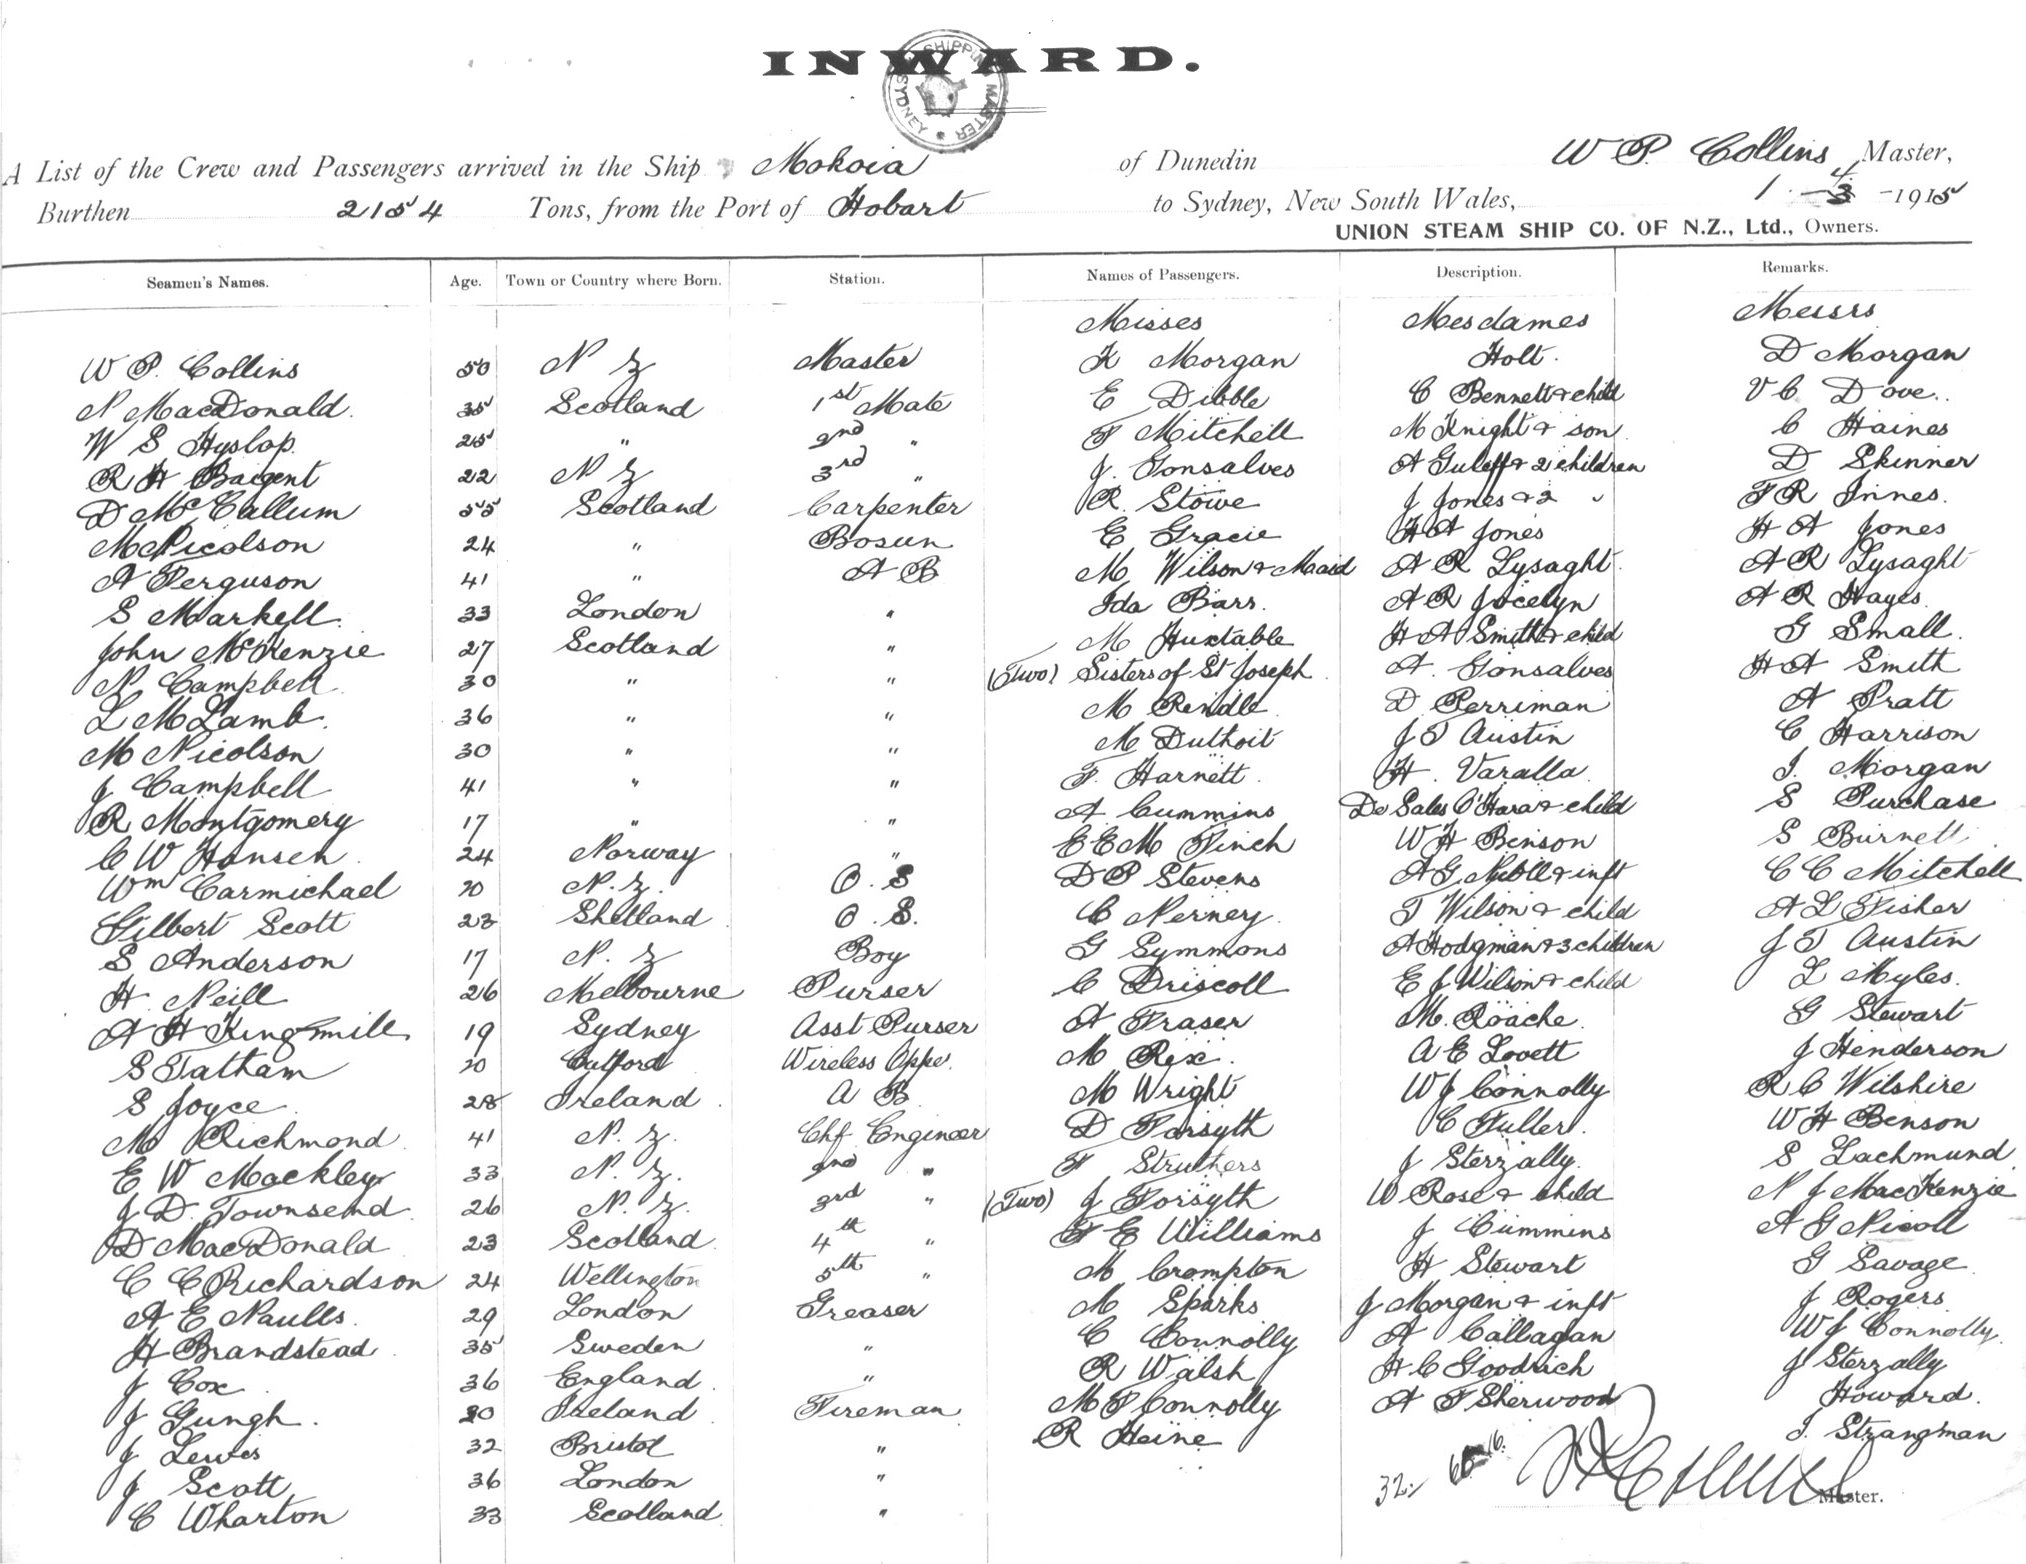 INWARD.
SHIPPING MASTER
SYDNEY
A List of the Crew and Passengers arrived in the Ship Mokoia of Dunedin W P. Collins Master,
Burthen 2154 Tons, from the Port of Hobart to Sydney, New South Wales, 1 - 4 - 1915
UNION STEAM SHIP CO. OF N.Z., Ltd., Owners.
Seamen's Names. Age. Town or Country where Born. Station. Names of Passengers. Description. Remarks.
Misses Mesdames Messrs
W P. Collins 50 N Z Master K Morgan Holt. D Morgan
N MacDonald. 35 Scotland 1st Mate E Dibble C Bennett & child V C Dove..
W S Hyslop. 25 " 2nd " F Mitchell M Knight & son C Haines
R H Baigent 22 N Z 3rd " J. Gonsalves A & 2 children D Skinner
D McCallum 55 Scotland Carpenter R. Stowe J Jones & 2 " F R Innes.
M Nicolson 24 " Bosun E Gracie H A Jones H A Jones
A Ferguson 41 " A B M Wilson & Maid A R Lysaght. A R Lysaght
S Markell. 33 London " Ida Barr. A R Jocelyn A R Hayes.
John McKenzie 27 Scotland " M Huxtable H A Smith & child G Small.
N Campbell. 30 " " (Two) Sisters of St Joseph. A. Gonsalves H A Smith
L M Lamb. 36 " " M Rendle. D Perriman A Pratt
M Nicolson 30 " " M Duthoit J T Austin C Harrison
J Campbell 41 " " F. Harnett. H. Varalla. J. Morgan
R Montgomery 17 " " A Cummins De Sales O'Hara & child S Purchase
C W Hansen. 24 Norway " E E M Finch W H Benson S Burnett.
Wm Carmichael 20 N. Z. O. S D P Stevens A G & inft C C Mitchell
Gilbert Scott 23 Shetland O. S. C Nerney. T Wilson & child A L Fisher
S Anderson 17 N. Z Boy G Symmons A Hodgman & 3 children J T Austin
H. Neill 26 Melbourne Purser C Driscoll E J Wilson & child L Myles.
A H Kingsmill 19 Sydney Asst Purser A Fraser M. Roache. G Stewart
S Tatham 20 Wireless Oppe. M Rix. A E Lovett J Henderson
S Joyce. 28 Ireland. A B. M Wright W J Connolly R C Wilshire
M Richmond. 41 N. Z. Chf Engineer D Forsyth C Fuller. W H Benson
E W Mackley 33 N. Z. 2nd " F Struthers J Sterzally. S Lachmund
J D. Townsend. 26 N. Z. 3rd " (Two) J Forsyth W Rose & child N J MacKenzie
D MacDonald 23 Scotland. 4th " F E Williams J Cummins A G Nicoll
C C Richardson 24 Wellington 5th " M Crompton H Stewart G Savage
A E Naulls. 29 London Greaser M Sparks J Morgan & inft J Rogers.
H Brandstead. 35 Sweden " C Connolly A Callagan W J Connolly.
J Cox 36 England. " R Walsh H C Goodrich J Sterzally
J Gungh. 20 Ireland. Fireman. M F Connolly A F Sherwood Howard.
J Lewes 32 Bristol " R Heine J. Strangman
J Scott 36 London " 32.
C Wharton 33 Scotland " Master.